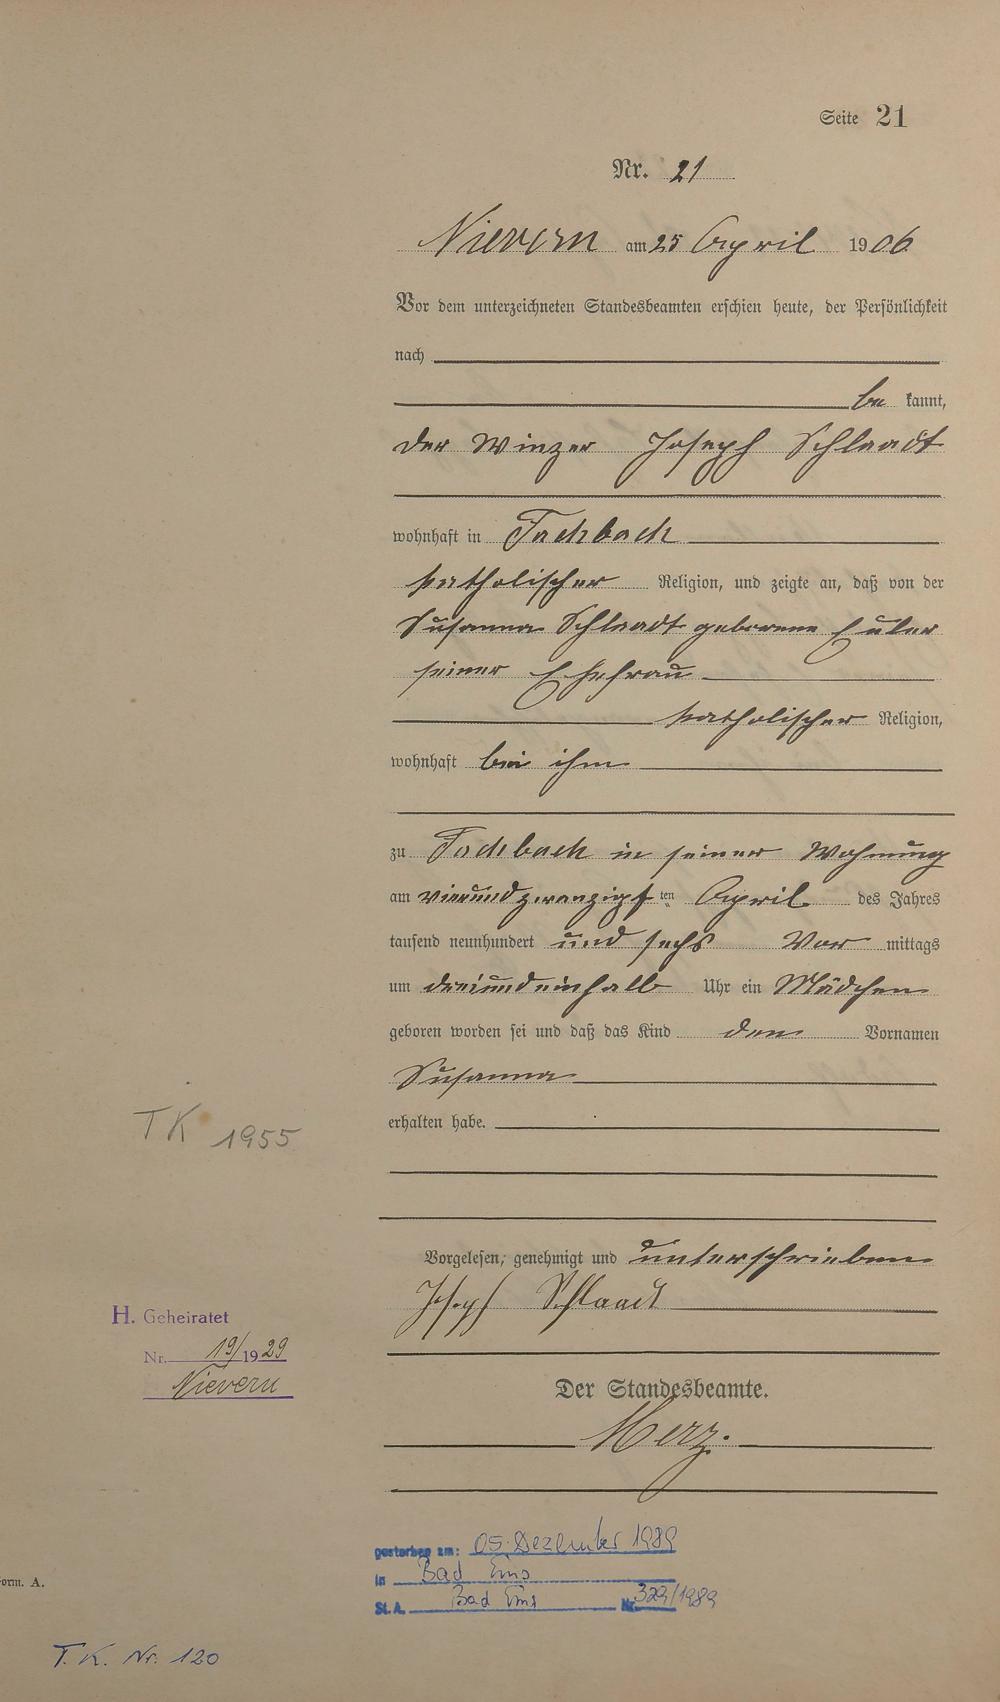 Seite 21
Nr. 21
Nievern am 25 April 1906
Vor dem unterzeichneten Standesbeamten erschien heute, der Persönlichkeit
nach
be kannt,
der Winzer Joseph Schlaadt
wohnhaft in Fachbach
katholischer Religion, und zeigte an, daß von der
Susanna Schlaadt geborene Euler
seiner Ehefrau
katholischer Religion,
wohnhaft bei ihm
zu Fachbach in seiner Wohnung
am vierundzwanzigsten April des Jahres
tausend neunhundert und sechs Vor mittags
um dreiundeinhalb Uhr ein Mädchen
geboren worden sei und daß das Kind den Vornamen
Susanna
erhalten habe.
TK 1955
Vorgelesen, genehmigt und unterschrieben
Joseph Schlaadt
H. Geheiratet
Nr. 19/1929
Nievern
Der Standesbeamte.
Merz.
gestorben am: 05. Dezember 1989
in Bad Ems
St.A. Bad Ems Nr. 329/1989
orm. A.
T. K. Nr. 120